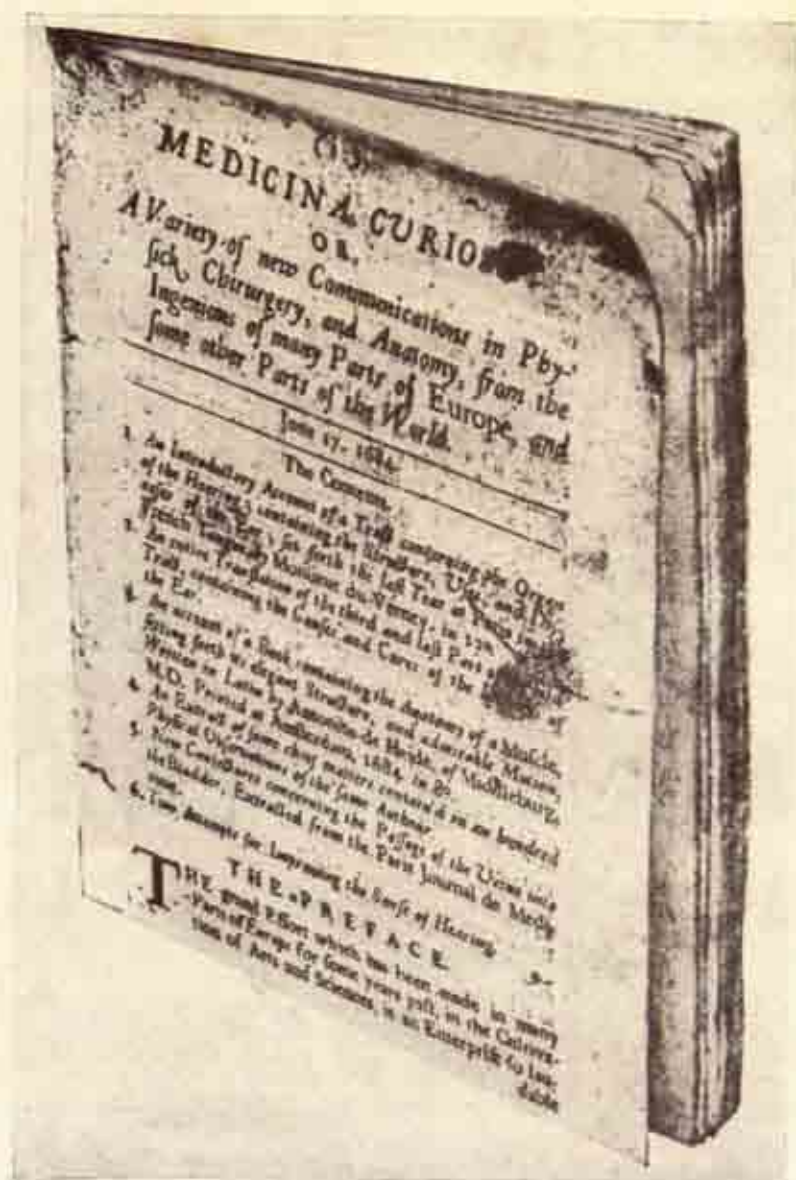 (1)
MEDICINA CURIO
OR,
A Variety of new Communications in Phy-
sick, Chirurgery, and Anatomy, from the
Ingenious of many Parts of Europe, and
some other Parts of the World.
June 17. 1684.
The Contents.
1. An Introductory Account of a Tract concerning the Organ
of the Hearing; containing the Structure, Uses, and
of the Ear; set forth the last Year at Paris in
French by Monsieur du Verney, in 12º
2. An entire Translation of the third and last Part
Tract, containing the Causes and Cures of the of
the Ear.
3. An account of a Book containing the Anatomy of a Muscle,
setting forth its elegant Structure, and admirable Motion,
Written in Latin by Antonius de Heyde, of Middleburg,
M.D. Printed at Amsterdam, 1684. in 8º.
4. An Extract of some choice matters contain'd in an hundred
Physical Observations of the same Author.
5. New Conjectures concerning the Passage of the Urine into
the Bladder, Extracted from the Paris Journal de Mede-
cine.
6. Two Attempts for Improving the Sense of Hearing.
THE PREFACE.
THE grand Effort which has been made in many
Parts of Europe for some years past, in the Cultiva-
tion of Arts and Sciences, is an Enterprise so lau-
dable